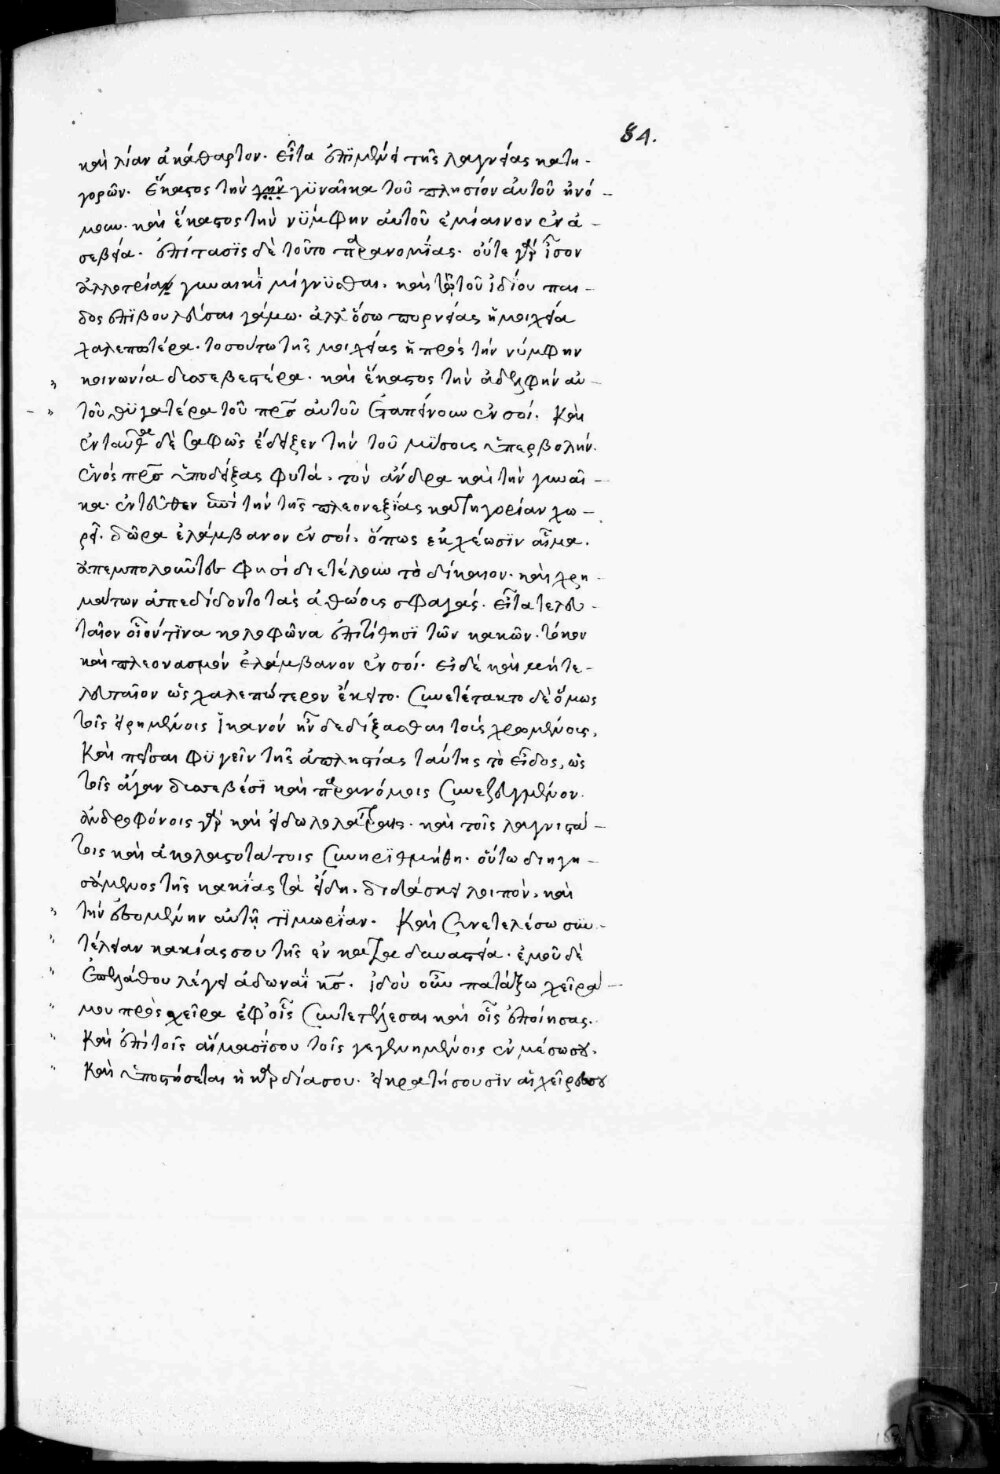 84.
καὶ λίαν ἀκάθαρτον. εἶτα ἐπϊμένει τῆς λαγνείας κατη-
γορῶν. ἕκαστος τὴν γϋναῖκα τοῦ πλησίον ἀυτοῦ ἠνό-
μουν. καὶ ἕκαστος τὴν νϋμφην ἀυτοῦ ἐμίαινον ἐν ἀ-
σεβεία. ἐπίτασϊς δὲ τοῦτο παρανομΐας. οὔτε γὰρ ἶσον
ἀλλοτρία γυναικῒ μίγνϋσθαι. καὶ τῶ τοῦ ἰδίου παι-
δος ἐπϊβουλεῦσαι γάμω. ἀλλ' ὅσω πορνείας ἡ μοιχεία
χαλεπωτέρα. τοσούτω τῆς μοιχείας ἡ πρὸς τὴν νύμφην
κοινωνία δυσσεβεστέρα. καὶ ἕκαστος τὴν ἀδελφὴν αυ-
τοῦ θϋγατέρα τοῦ πρσ ἀυτοῦ ἐταπείνουν ἐν σοί. Καὶ
ἐνταῦθα δὲ σαφῶς ἔδειξεν τὴν τοῦ μϋσους ὑπερβολήν.
ἑνός πρσ ὑποδείξας φυτά. τὸν ἄνδρα καὶ τὴν γυναῖ-
κα. ἐντεῦθεν ἐπὶ τὴν τῆς πλεονεξίας κατηγορίαν χω-
ρεῖ. δῶρα ἐλάμβανον ἐν σοί. ὅπως ἐκχέωσϊν αἷμα.
ἀπεμπολοῦντες φησί διετέλουν τὸ δίκαιον. καὶ χρη-
μάτων ἀπεδίδοντο τὰς ἀθώοις σφαγάς. εἶτα τελευ-
ταῖον οἱονότϊνα κολοφῶνα ἐπιτίθησϊ τῶν κακῶν. τόκον
καὶ πλεονασμόν ἐλάμβανον ἐν σοί. εἰ δὲ καὶ μὴ τε-
λευταῖον ὡς χαλεπώτερον ἔκειτο. συνετέτακτο δὲ ὅμως
τοῖς εἰρημένοις ἱκανόν ἦν δεδίξασθαι τοὺς χρωμένοις.
Καὶ πεῖσαι φϋγεῖν τῆς ἀπληστίας ταύτης τὸ εἶδος, ὡς
τοῖς ἄγαν δυσσεβέσϊ καὶ παρανόμοις συνεζευγμένον.
ἀνδροφόνοις γὰρ καὶ εἰδωλολάτραις. καὶ τοῖς λαγνιστά-
τοις καὶ ἀκολαστοτάτοις συνηρϊθμήθη. οὕτω διηγη-
σάμενος τῆς κακίας τὰ εἴδη. διδάσκει λοιπόν. καὶ
τὴν ἑπομένην αὐτῇ τϊμωρΐαν. Καὶ συνετελέσω συν-
τέλειαν κακίας σου τῆς ἐν καταδυναστεία. ἐμοῦ δὲ
ἐπελάθου λέγει ἀδωναῒ κσ. ἰδοὺ οὖν πατάξω χεῖρά
μου πρὸς χεῖρα ἐφ' οἷς συντετέλεσαι καὶ οἷς ἐποίησας.
Καὶ ἐπὶ τοῖς αἵμασϊ σου τοῖς γεγενημένοις ἐν μέσω σου.
Καὶ ὑποστήσεται ἡ καρδία σου. εἰ κρατήσουσϊν αἱ χεῖρές σου